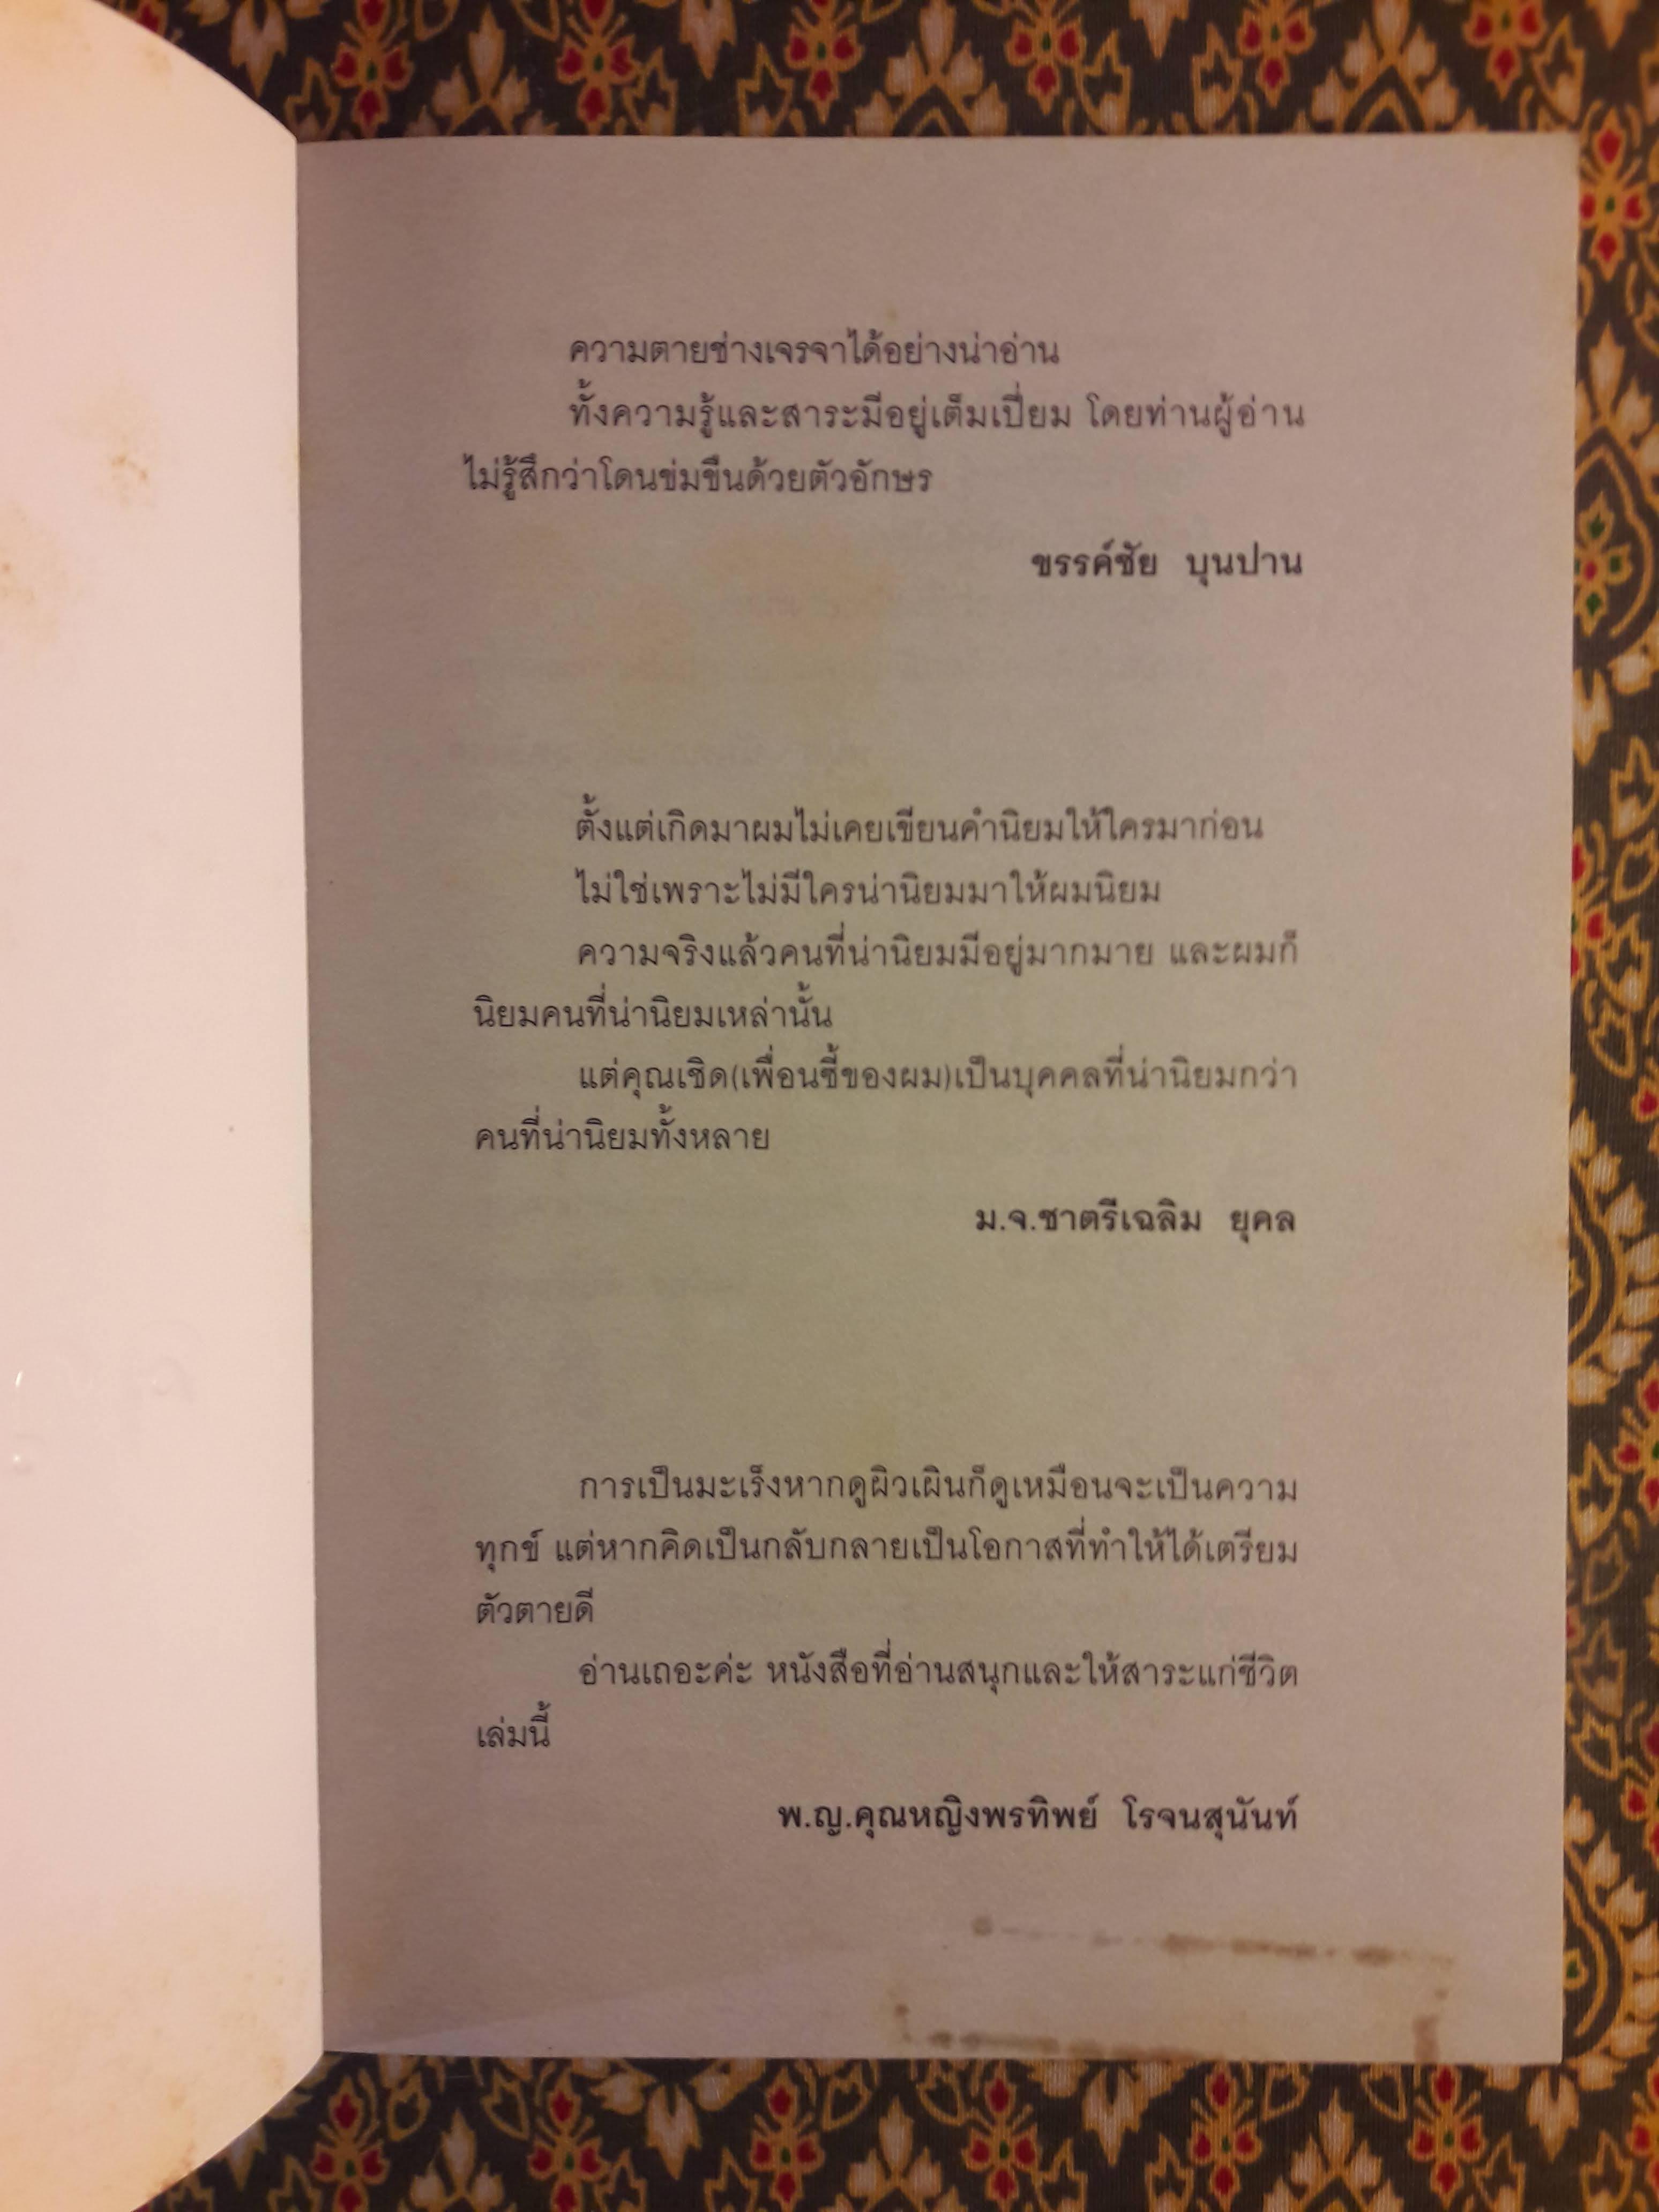 ความตายช่างเจรจาได้อย่างน่าอ่าน
ทั้งความรู้และสาระมีอยู่เต็มเปี่ยม โดยท่านผู้อ่าน
ไม่รู้สึกว่าโดนข่มขืนด้วยตัวอักษร
ขรรค์ชัย บุนปาน
ตั้งแต่เกิดมาผมไม่เคยเขียนคำนิยมให้ใครมาก่อน
ไม่ใช่เพราะไม่มีใครน่านิยมมาให้ผมนิยม
ความจริงแล้วคนที่น่านิยมมีอยู่มากมาย และผมก็
นิยมคนที่น่านิยมเหล่านั้น
แต่คุณเชิด(เพื่อนซี้ของผม)เป็นบุคคลที่น่านิยมกว่า
คนที่น่านิยมทั้งหลาย
ม.จ.ชาตรีเฉลิม ยุคล
การเป็นมะเร็งหากดูผิวเผินก็ดูเหมือนจะเป็นความ
ทุกข์ แต่หากคิดเป็นกลับกลายเป็นโอกาสที่ทำให้ได้เตรียม
ตัวตายดี
อ่านเถอะค่ะ หนังสือที่อ่านสนุกและให้สาระแก่ชีวิต
เล่มนี้
พ.ญ.คุณหญิงพรทิพย์ โรจนสุนันท์